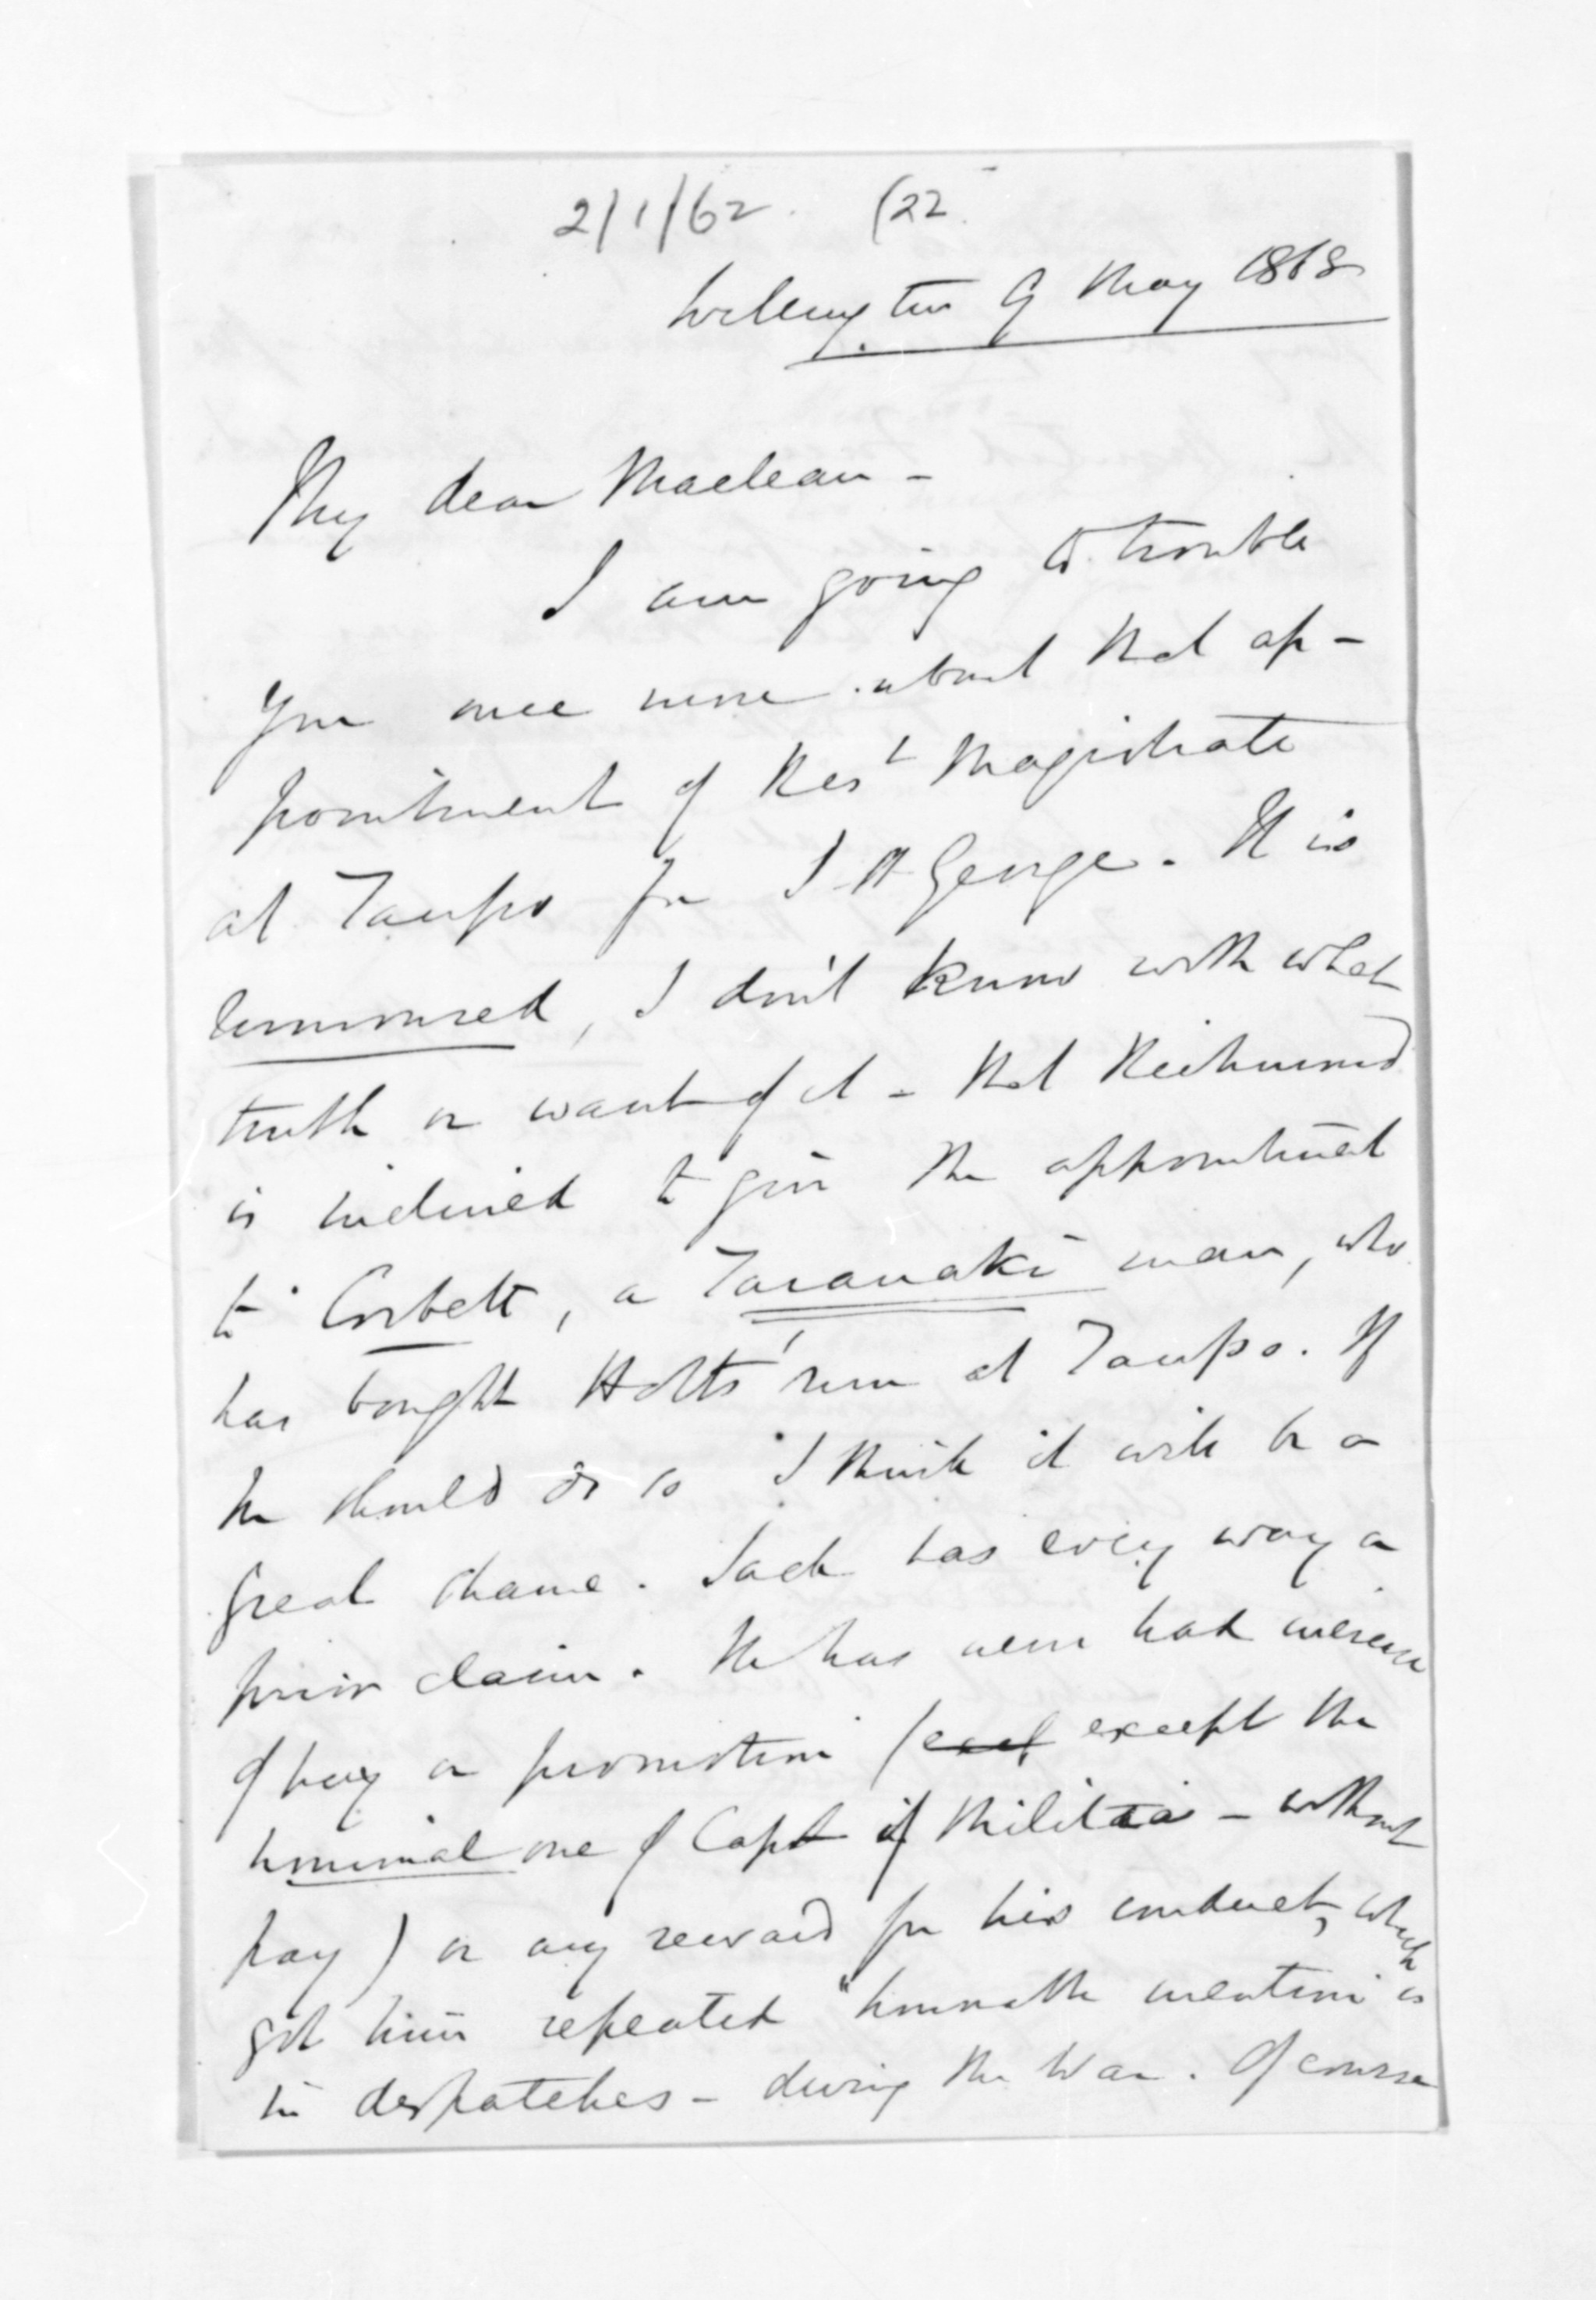 2/1/62. (22.
Wellington 9 May 1868
My dear Maclean -
I am going to trouble
you once more about that ap-
pointment of Rest Magistrate
at Taupo for St George. It is
rumoured, I don't know with what
truth or want of it - that Richmond
is inclined to give the appointment
to Corbett, a Taranaki man, who
has bought Holts' run at Taupo. If
he should do so I think it will be a
great shame. Jack has every way a
prior claim. He has never had increase
of pay or promotion (except the
nominal one of Capt of Militia - without
pay) or any reward for his conduct, which
got him repeated "honorable mention"
in despatches - during the War. Of course